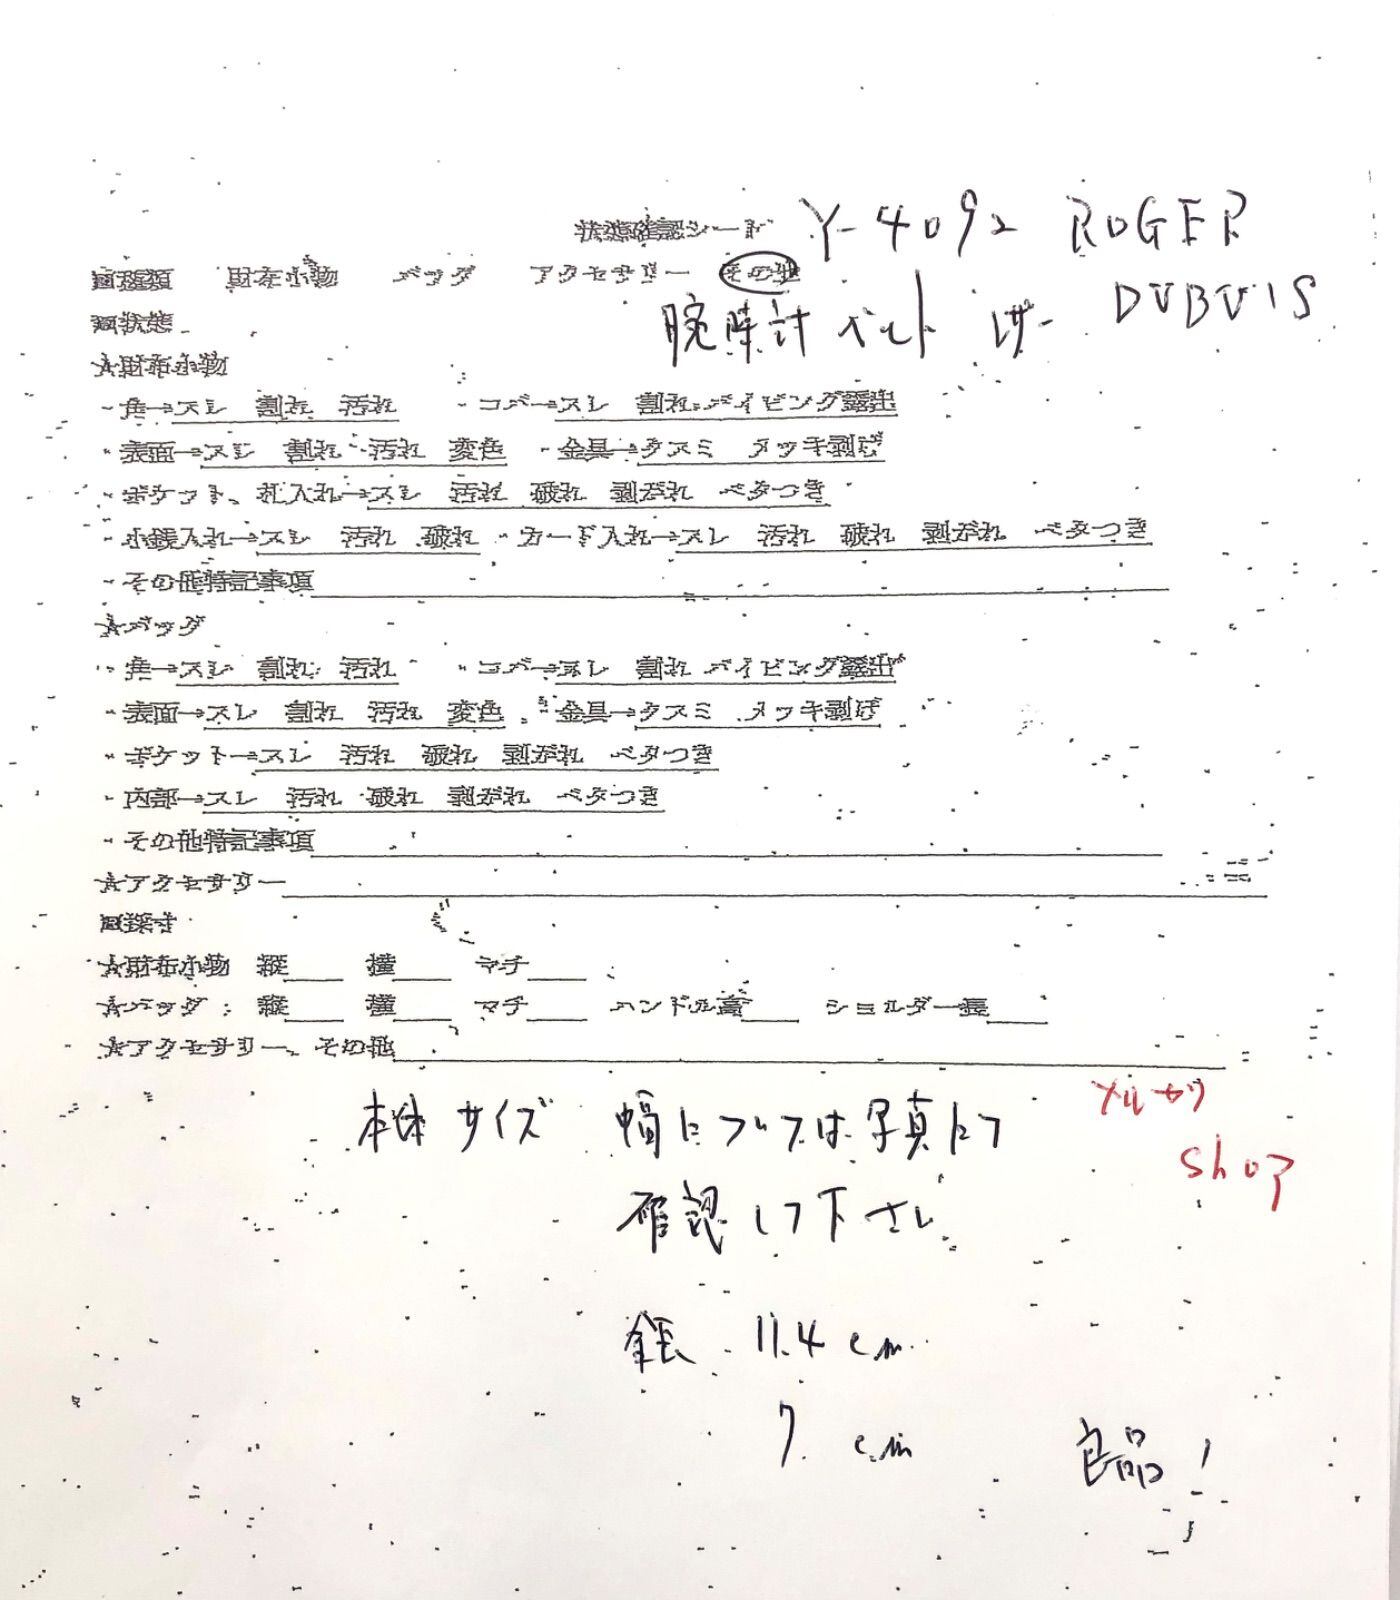 状態確認シート Y-4092 ROGER
□種類 財布小物 バッグ アクセサリー その他
DUBUIS
腕時計ベルト レザー
□状態
☆財布小物
・角→スレ 割れ 汚れ ・コバ→スレ 割れ パイピング露出
・表面→スレ 割れ 汚れ 変色 ・金具→クスミ メッキ剥げ
・ポケット、札入れ→スレ 汚れ 破れ 剥がれ ベタつき
・小銭入れ→スレ 汚れ 破れ ・カード入れ→スレ 汚れ 破れ 剥がれ ベタつき
・その他特記事項
☆バッグ
・角→スレ 割れ 汚れ ・コバ→スレ 割れ パイピング露出
・表面→スレ 割れ 汚れ 変色 ・金具→クスミ メッキ剥げ
・ポケット→スレ 汚れ 破れ 剥がれ ベタつき
・内部→スレ 汚れ 破れ 剥がれ ベタつき
・その他特記事項
☆アクセサリー
□採寸
☆財布小物 縦 横 マチ
☆バッグ: 縦 横 マチ ハンドル高 ショルダー長
☆アクセサリー、その他
メルカリ
shop
本体サイズ 幅については写真にて
確認して下さい
全長 11.4cm
7 cm
良品!